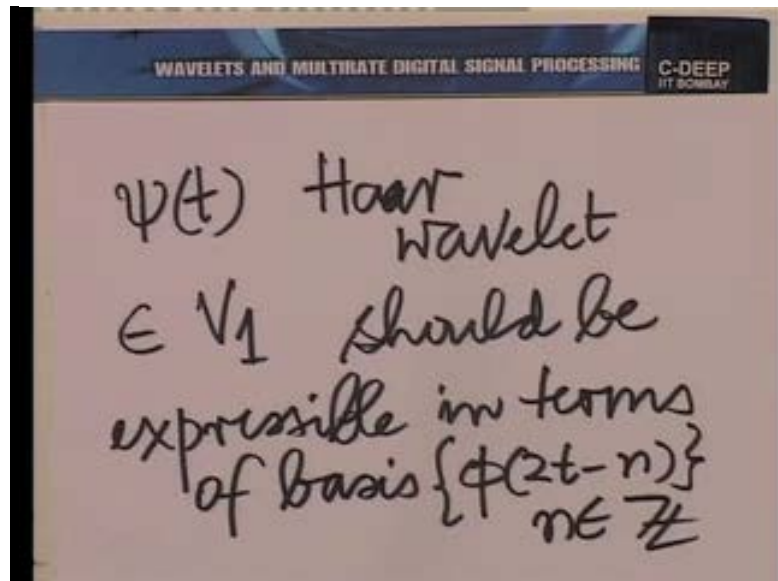 WAVELETS AND MULTIRATE DIGITAL SIGNAL PROCESSING
C-DEEP
IIT BOMBAY
ψ(t) Haar
wavelet
∈ V1 should be
expressible in terms
of basis {φ(2t-n)}
n∈ ℤ